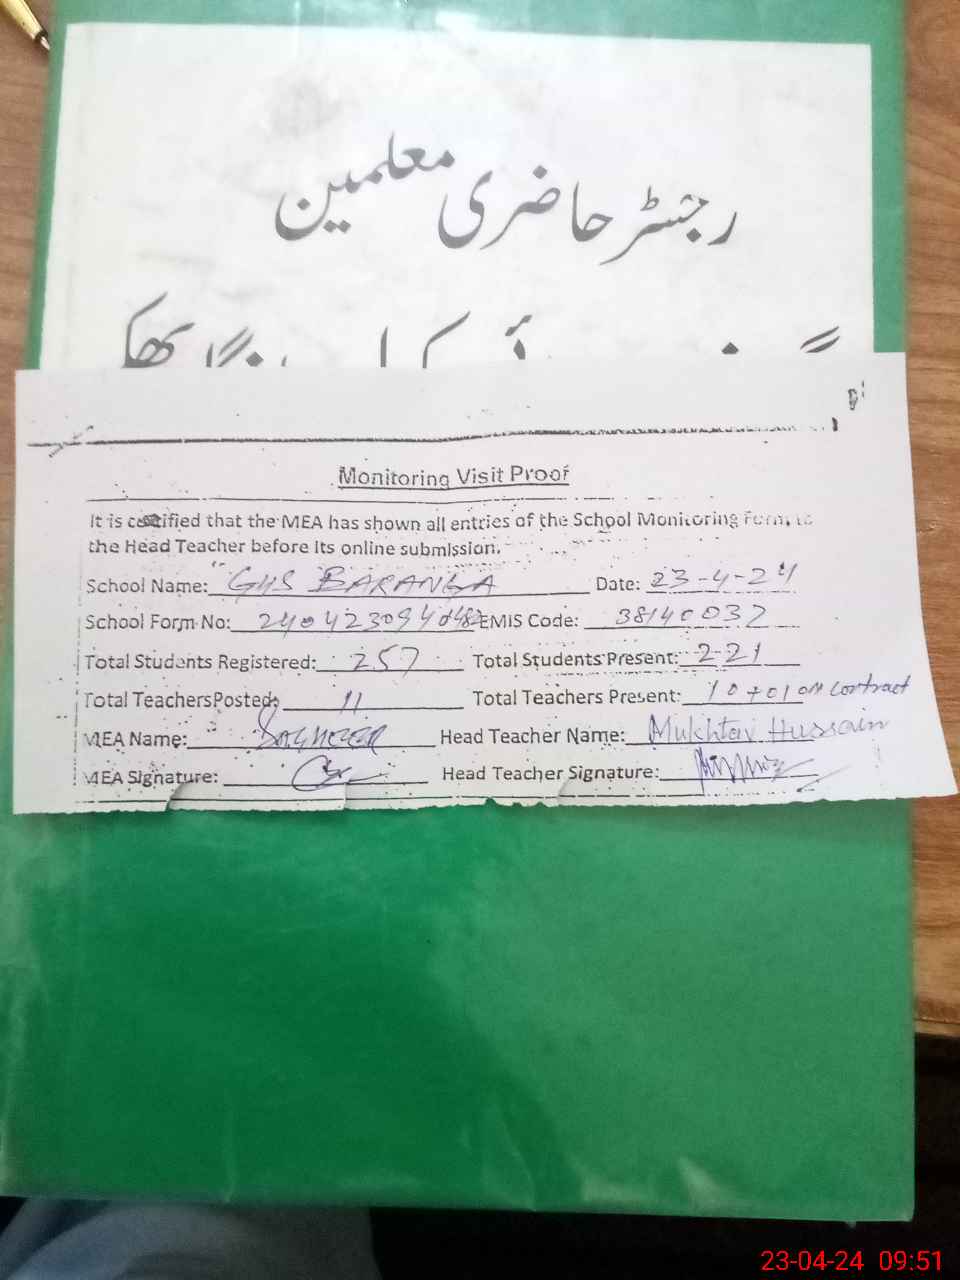 رجسٹر حاضری معلمین
Monitoring Visit Proof
It is certified that the MEA has shown all entries of the School Monitoring Form, to
the Head Teacher before its online submission.
School Name: GHS BARANGA Date: 23-4-24
School Form No: EMIS Code: 38140037
Total Students Registered: 257 Total Students Present: 221
Total Teachers Posted: 11 Total Teachers Present: 10+01 on contract
MEA Name: SAGHEER Head Teacher Name: Mukhtar Hussain
MEA Signature: Head Teacher Signature:
23-04-24 09:51